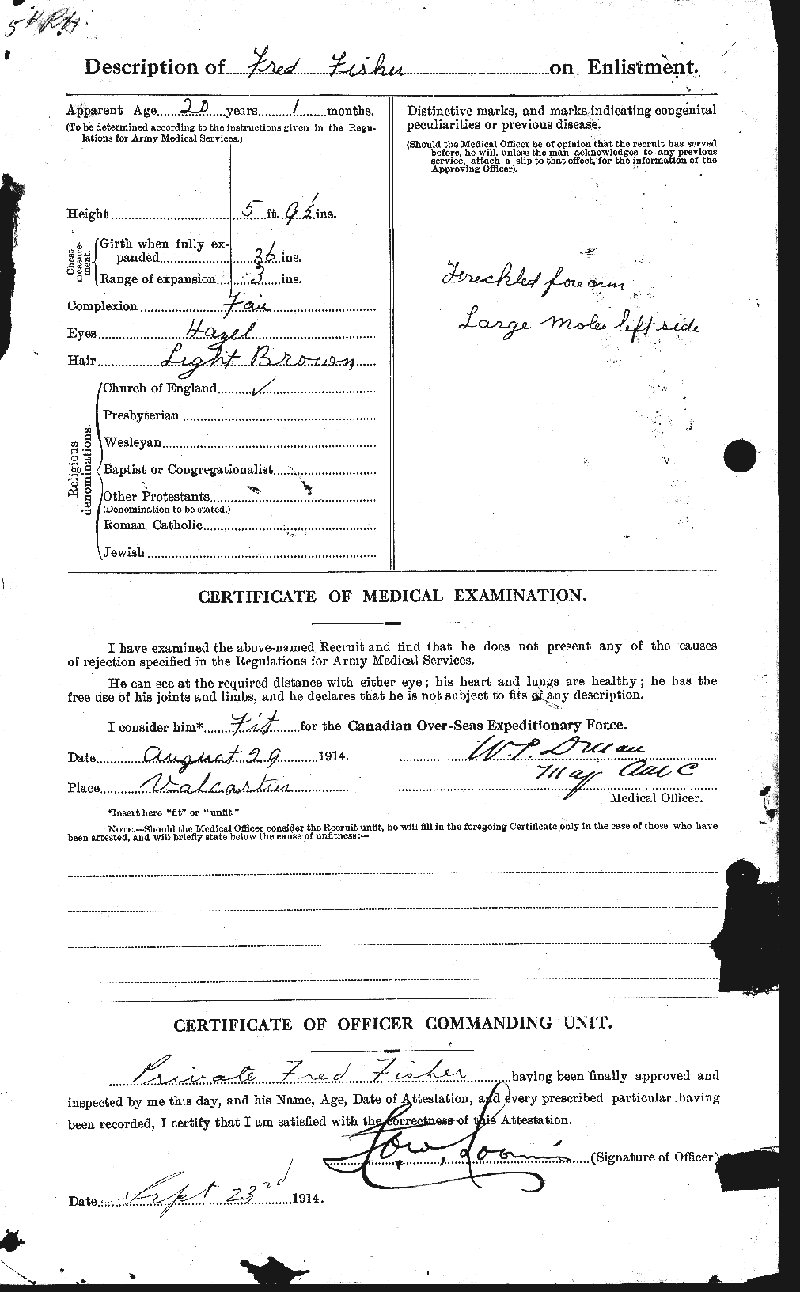 5th R.H.
Description of Fred Fisher on Enlistment.
Apparent Age 20 years 1 months.
(To be determined according to the instructions given in the Regulations for Army Medical Services.)
Height 5 ft. 9½ ins.
Chest measurement.
Girth when fully expanded 36 ins.
Range of expansion 3 ins.
Complexion Fair
Eyes Hazel
Hair Light Brown
Religious denominations.
Church of England ✓
Presbyterian
Wesleyan
Baptist or Congregationalist
Other Protestants
(Denomination to be stated.)
Roman Catholic
Jewish
Distinctive marks, and marks indicating congenital
peculiarities or previous disease.
(Should the Medical Officer be of opinion that the recruit has served
before, he will, unless the man acknowledges to any previous
service, attach a slip to that effect, for the information of the
Approving Officer).
Freckled forearm
Large moles left side
CERTIFICATE OF MEDICAL EXAMINATION.
I have examined the above-named Recruit and find that he does not present any of the causes
of rejection specified in the Regulations for Army Medical Services.
He can see at the required distance with either eye; his heart and lungs are healthy; he has the
free use of his joints and limbs, and he declares that he is not subject to fits of any description.
I consider him* Fit for the Canadian Over-Seas Expeditionary Force.
Date August 29 1914.
Place Valcartier
Maj AMC
Medical Officer.
*Insert here "fit" or "unfit"
NOTE.—Should the Medical Officer consider the Recruit unfit, he will fill in the foregoing Certificate only in the case of those who have
been attested, and will briefly state below the cause of unfitness:—
CERTIFICATE OF OFFICER COMMANDING UNIT.
Private Fred Fisher having been finally approved and
inspected by me this day, and his Name, Age, Date of Attestation, and every prescribed particular having
been recorded, I certify that I am satisfied with the correctness of this Attestation.
Loomis (Signature of Officer)
Date Sept 23rd 1914.